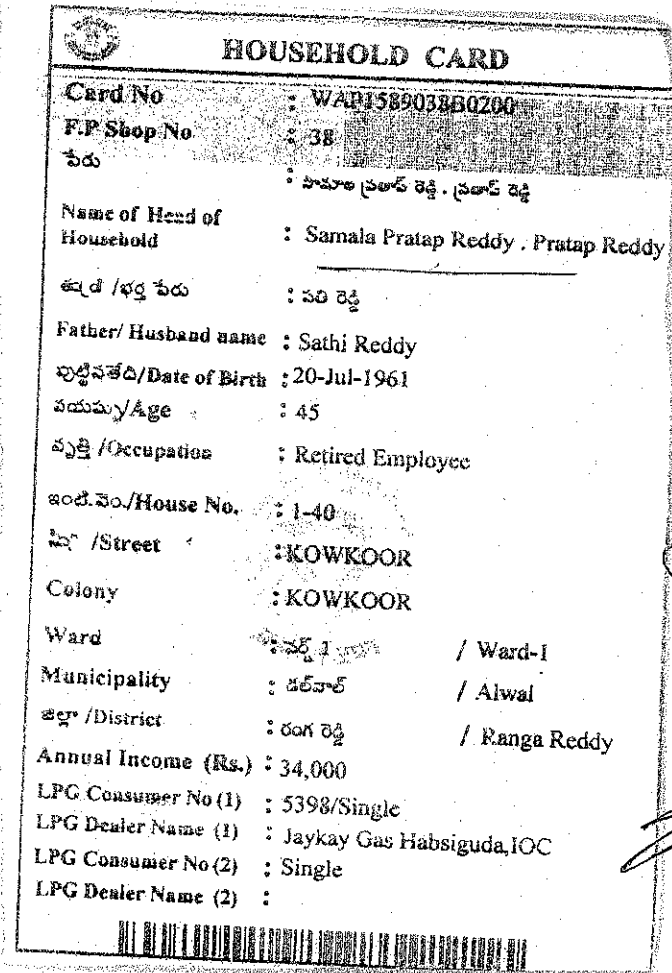 HOUSEHOLD CARD
Card No : WAP1589038B0200
F.P Shop No : 38
పేరు : సామాల ప్రతాప్ రెడ్డి . ప్రతాప్ రెడ్డి
Name of Head of
Household : Samala Pratap Reddy . Pratap Reddy
తండ్రి /భర్త పేరు : సతి రెడ్డి
Father/ Husband name : Sathi Reddy
పుట్టినతేది/Date of Birth : 20-Jul-1961
వయస్సు/Age : 45
వృత్తి /Occupation : Retired Employee
ఇంటి.నెం./House No. : 1-40
/Street : KOWKOOR
Colony : KOWKOOR
Ward : వర్డ్ 1 / Ward-1
Municipality : / Alwal
జిల్లా /District : రంగ రెడ్డి / Ranga Reddy
Annual Income (Rs.) : 34,000
LPG Consumer No (1) : 5398/Single
LPG Dealer Name (1) : Jaykay Gas Habsiguda,IOC
LPG Consumer No (2) : Single
LPG Dealer Name (2) :